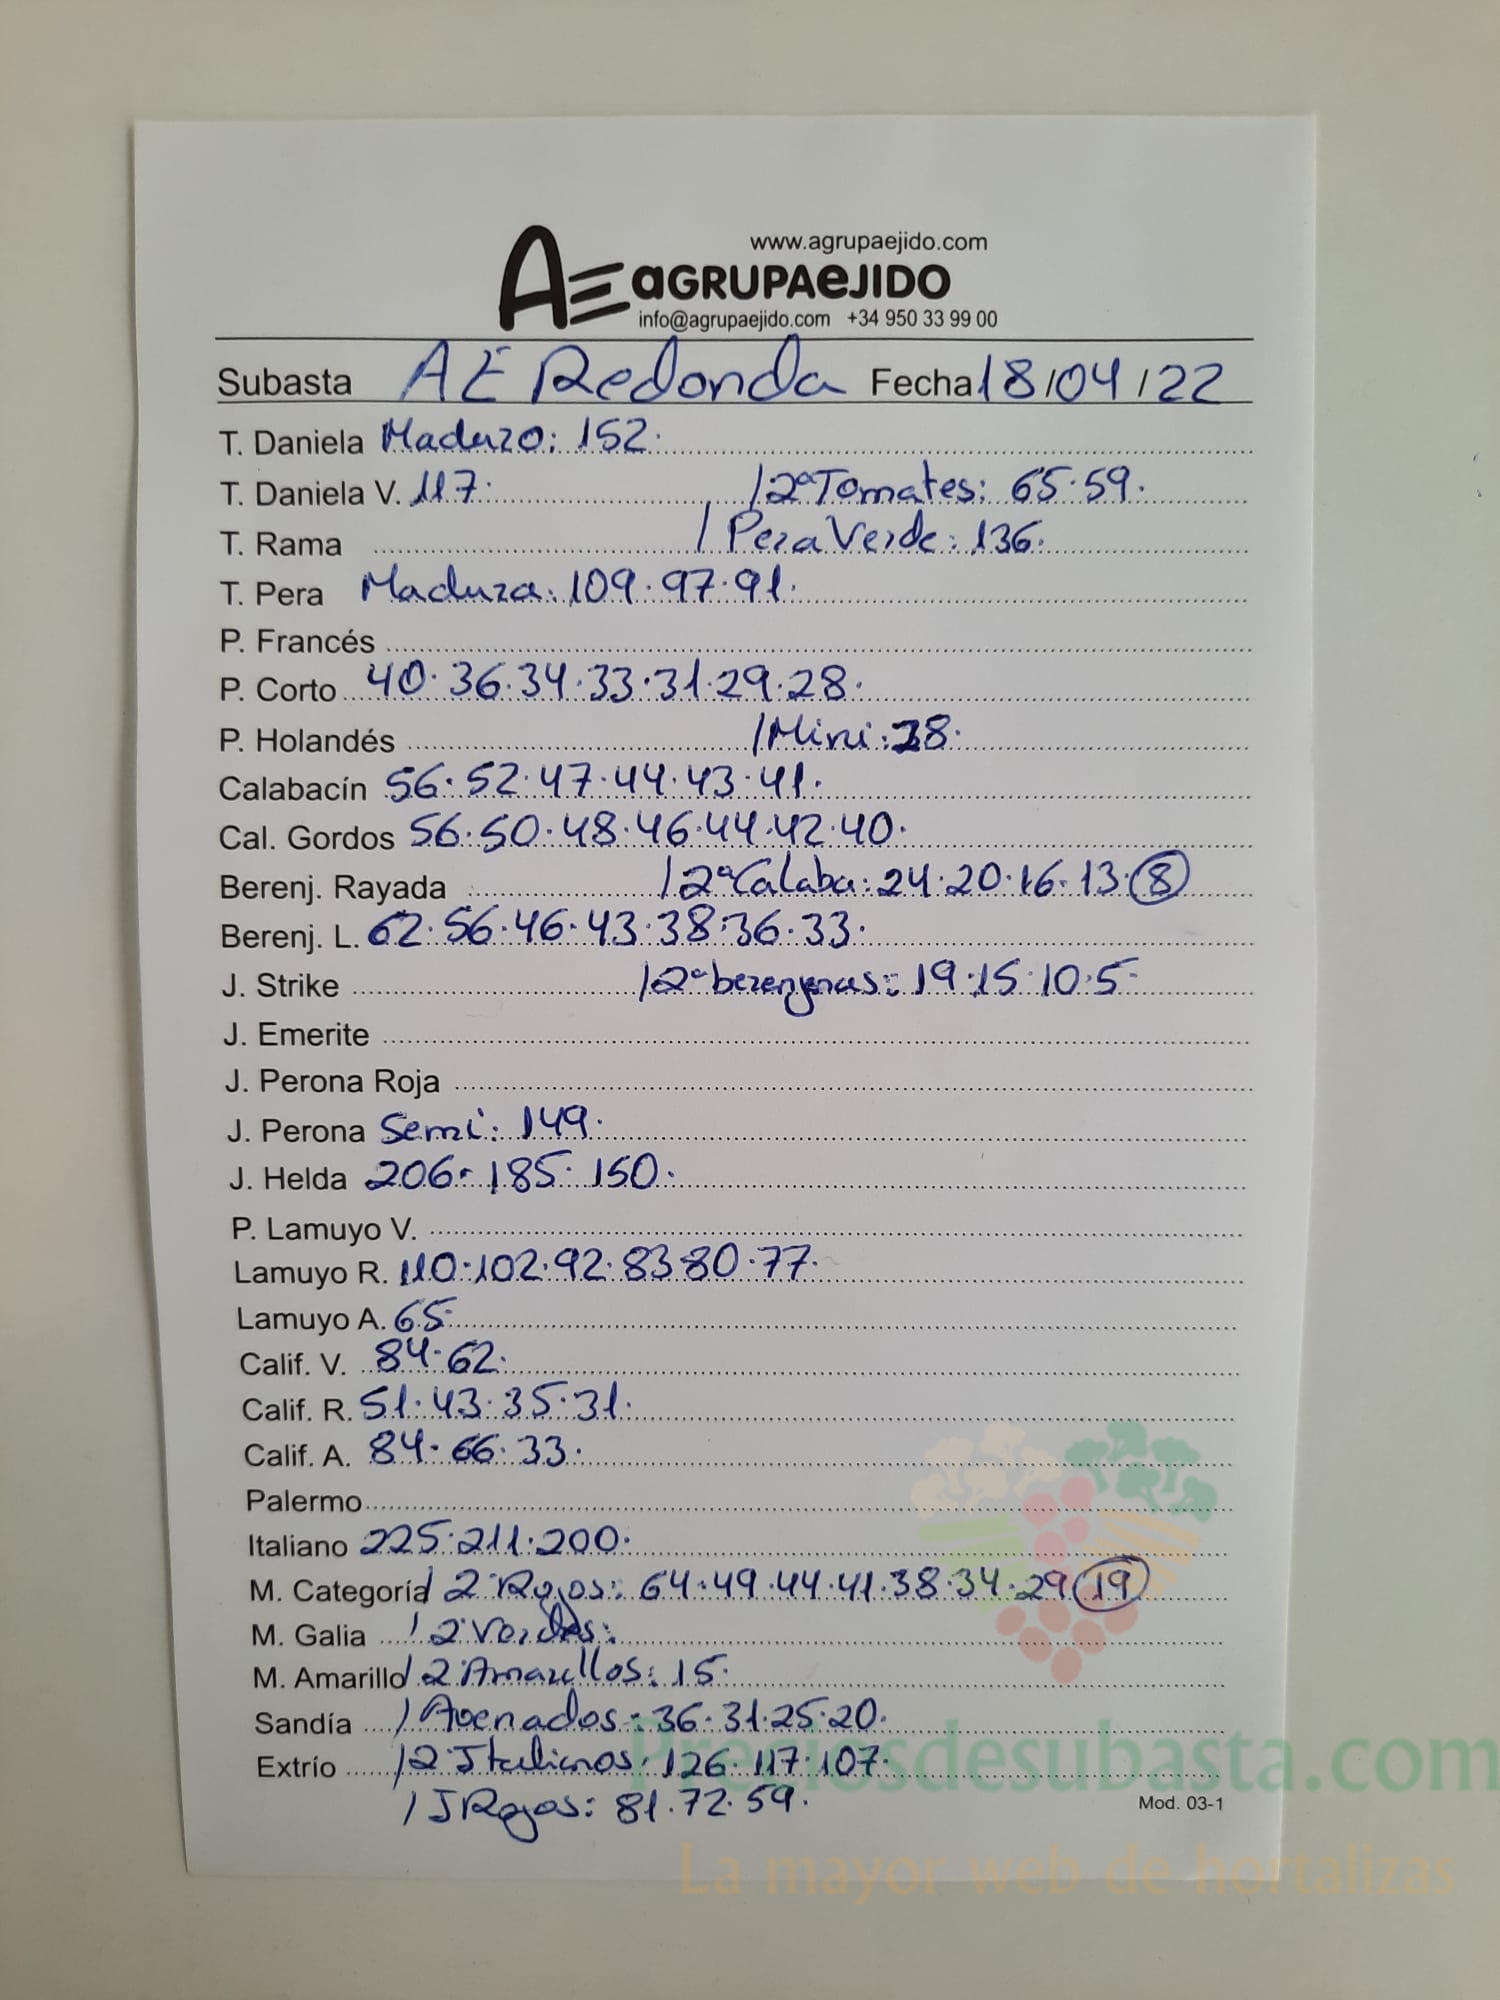 www.agrupaejido.com
AE aGRUPAeJIDO
info@agrupaejido.com +34 950 33 99 00
Subasta AE Redonda Fecha 18/04/22
T. Daniela Maduro: 152.
T. Daniela V. 117. /2ª Tomates: 65.59.
T. Rama / Pera Verde: 136.
T. Pera Madura: 109.97.91.
P. Francés
P. Corto 40.36.34.33.31.29.28.
P. Holandés /Mini: 28.
Calabacín 56.52.47.44.43.41.
Cal. Gordos 56.50.48.46.44.42.40.
Berenj. Rayada /2ª Calaba: 24.20.16.13.8
Berenj. L. 62.56.46.43.38.36.33.
J. Strike /2ª berenjenas: 19.15.10.5
J. Emerite
J. Perona Roja
J. Perona Semi: 149.
J. Helda 206.185.150.
P. Lamuyo V.
Lamuyo R. 110.102.92.83.80.77.
Lamuyo A. 65
Calif. V. 84.62.
Calif. R. 51.43.35.31.
Calif. A. 84.66.33.
Palermo
Italiano 225.211.200.
M. Categoría / 2ª Rojos: 64.49.44.41.38.34.29 19
M. Galia / 2ª Verdes:
M. Amarillo / 2ª Amarillos: 15.
Sandía / Asenados: 36.31.25.20.
Extrío /2ª Italianos: 126.117.107.
/ J Rojos: 81.72.59.
Mod. 03-1
Preciosdesubasta.com
La mayor web de hortalizas